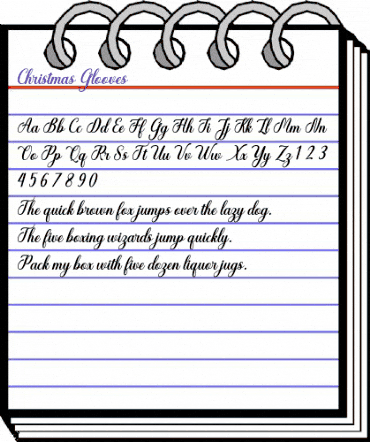 Christmas Glooves
Aa Bb Cc Dd Ee Ff Gg Hh Ii Jj Kk Ll Mm Nn
Oo Pp Qq Rr Ss Tt Uu Vv Ww Xx Yy Zz 1 2 3
4 5 6 7 8 9 0
The quick brown fox jumps over the lazy dog.
The five boxing wizards jump quickly.
Pack my box with five dozen liquor jugs.